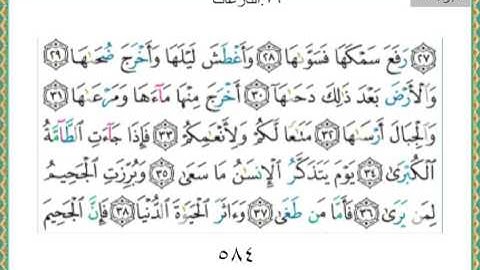 ٢٧ رَفَعَ سَمْكَهَا فَسَوَّىٰهَا ٢٨ وَأَغْطَشَ لَيْلَهَا وَأَخْرَجَ ضُحَىٰهَا ٢٩
وَالْأَرْضَ بَعْدَ ذَٰلِكَ دَحَىٰهَا ٣٠ أَخْرَجَ مِنْهَا مَآءَهَا وَمَرْعَىٰهَا ٣١
وَالْجِبَالَ أَرْسَىٰهَا ٣٢ مَتَٰعًا لَكُمْ وَلِأَنْعَٰمِكُمْ ٣٣ فَإِذَا جَآءَتِ الطَّآمَّةُ
الْكُبْرَىٰ ٣٤ يَوْمَ يَتَذَكَّرُ الْإِنسَٰنُ مَا سَعَىٰ ٣٥ وَبُرِّزَتِ الْجَحِيمُ
لِمَن يَرَىٰ ٣٦ فَأَمَّا مَن طَغَىٰ ٣٧ وَءَاثَرَ الْحَيَوٰةَ الدُّنْيَا ٣٨ فَإِنَّ الْجَحِيمَ
٥٨٤